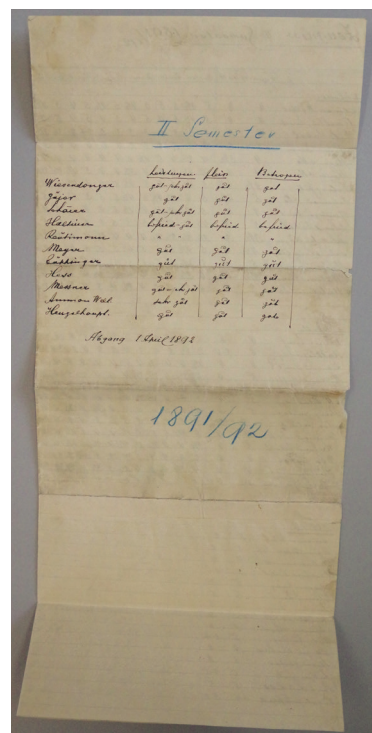 II Semester
Leistungen Fleiss Betragen
Wiesendanger gut-sehr gut gut gut
gut gut gut
Schärer gut-sehr gut gut gut
befried-gut befried befried
" " "
Meyer gut gut gut
gut gut gut
Hess gut gut gut
Messmer gut-sehr gut gut gut
Ammann Wal. sehr gut gut gut
gut gut gut
Abgang 1 April 1892
1891/92